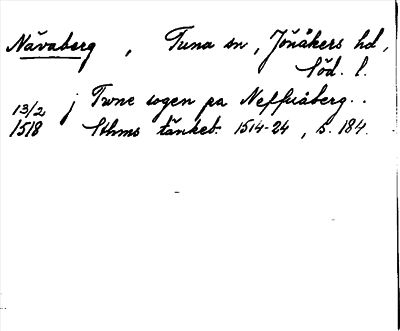 Nävaberg, Tuna sn, Jönåkers hd,
Söd. l.
13/2 j Twne sogen pa Neffuäberg..
1518 Sthms tänkeb. 1514-24, s. 184.